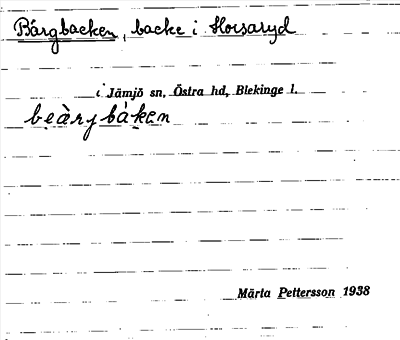 Bärgbacken, backe i Horsaryd
i Jämjö sn, Östra hd, Blekinge l.
beàrybáken
Märta Pettersson 1938